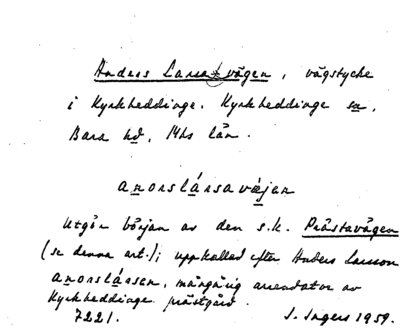 Anders Larsavägen, vägstycke
i Kyrkheddinge. Kyrkheddinge sn,
Bara hd, Mhs län.
anorslársavæjan
Utgör början av den s.k. Prästavägen
(se denna art.); uppkallad efter Anders Larsson
anorslársen, mångårig arrendator av
Kyrkheddinge prästgård.
7221. I. Ingers 1959.